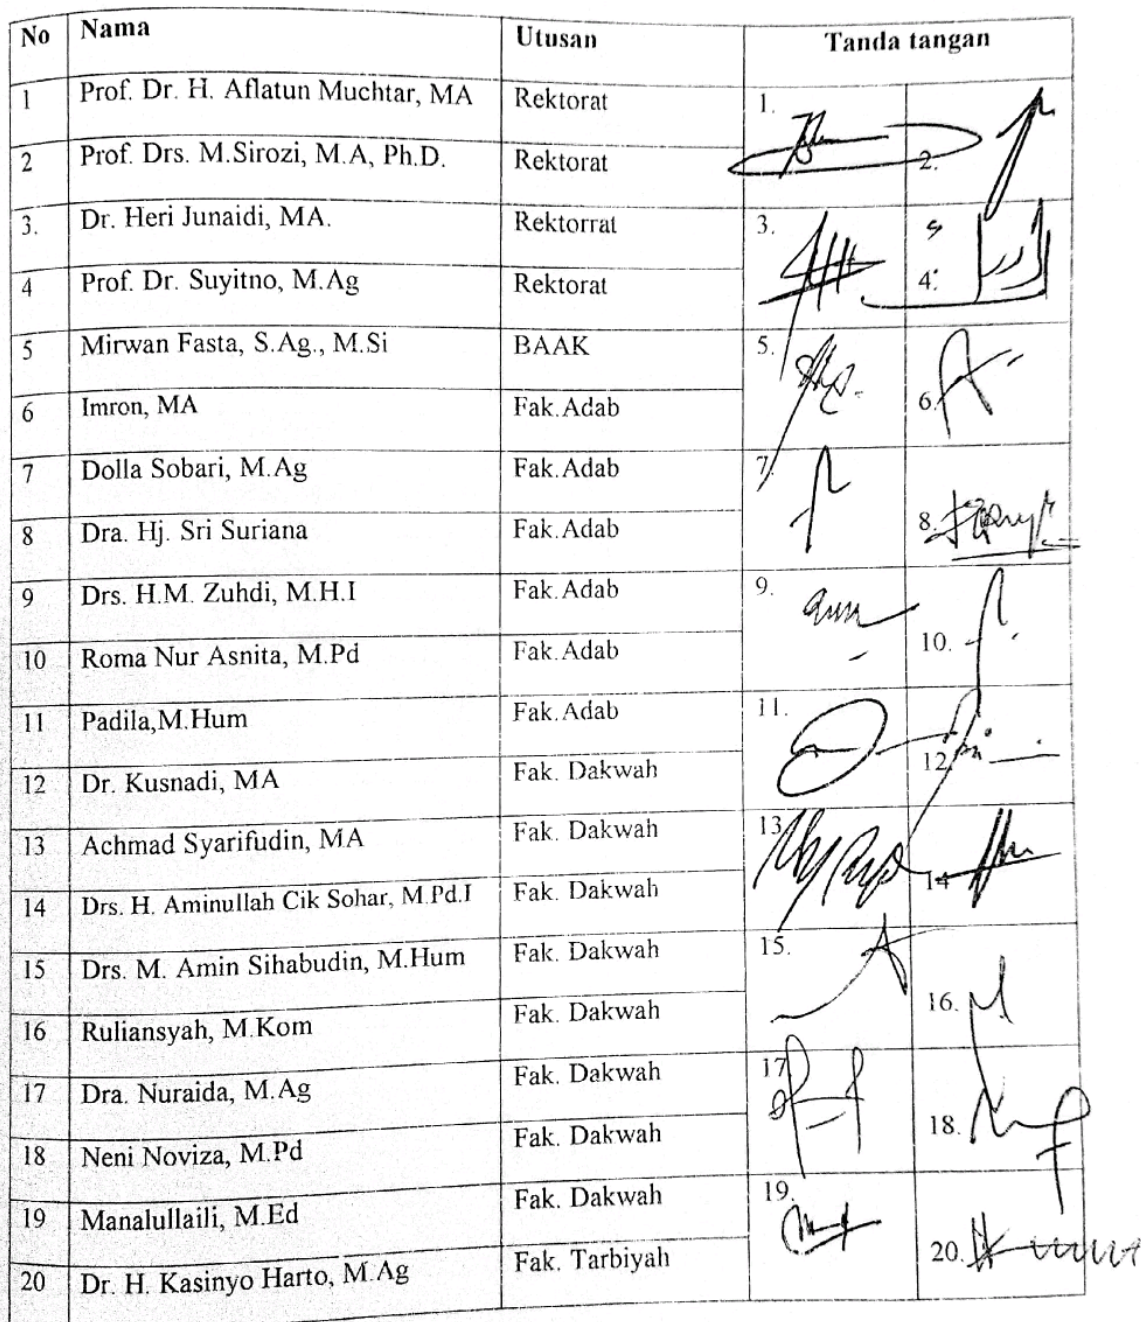 No Nama Utusan Tanda tangan
1 Prof. Dr. H. Aflatun Muchtar, MA Rektorat 1.
2 Prof. Drs. M.Sirozi, M.A, Ph.D. Rektorat 2.
3. Dr. Heri Junaidi, MA. Rektorrat 3.
4 Prof. Dr. Suyitno, M.Ag Rektorat 4.
5 Mirwan Fasta, S.Ag., M.Si BAAK 5.
6 Imron, MA Fak.Adab 6.
7 Dolla Sobari, M.Ag Fak.Adab 7.
8 Dra. Hj. Sri Suriana Fak.Adab 8.
9 Drs. H.M. Zuhdi, M.H.I Fak.Adab 9.
10 Roma Nur Asnita, M.Pd Fak.Adab 10.
11 Padila,M.Hum Fak.Adab 11.
12 Dr. Kusnadi, MA Fak. Dakwah 12.
13 Achmad Syarifudin, MA Fak. Dakwah 13
14 Drs. H. Aminullah Cik Sohar, M.Pd.I Fak. Dakwah 14
15 Drs. M. Amin Sihabudin, M.Hum Fak. Dakwah 15.
16 Ruliansyah, M.Kom Fak. Dakwah 16.
17 Dra. Nuraida, M.Ag Fak. Dakwah 17
18 Neni Noviza, M.Pd Fak. Dakwah 18.
19 Manalullaili, M.Ed Fak. Dakwah 19.
20 Dr. H. Kasinyo Harto, M.Ag Fak. Tarbiyah 20.